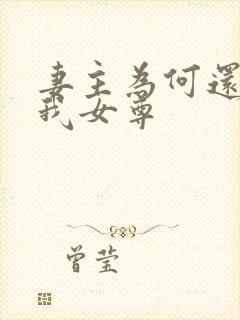 妻主為何還
我女尊
曾莹